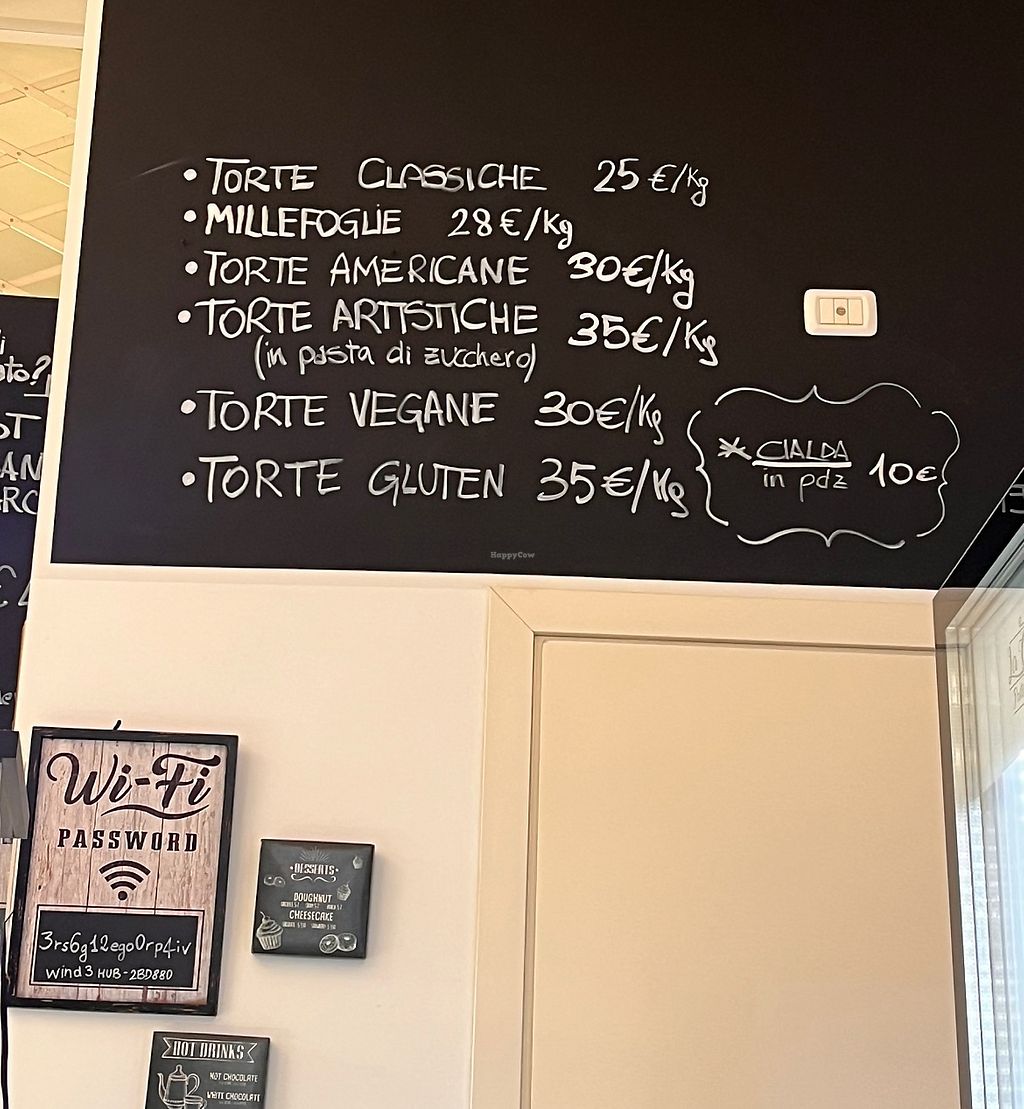 • TORTE CLASSICHE 25 €/Kg
• MILLEFOGLIE 28€/Kg
• TORTE AMERICANE 30€/Kg
• TORTE ARTISTICHE 35€/Kg
(in pasta di zucchero)
• TORTE VEGANE 30€/Kg
* CIALDA 10€
in pdz
• TORTE GLUTEN 35€/Kg
HappyCow
Wi-Fi
PASSWORD
3rs6g12ego0rp4iv
Wind3 HUB-2BD880
DESSERTS
DOUGHNUT
CHEESECAKE
HOT DRINKS
HOT CHOCOLATE
WHITE CHOCOLATE